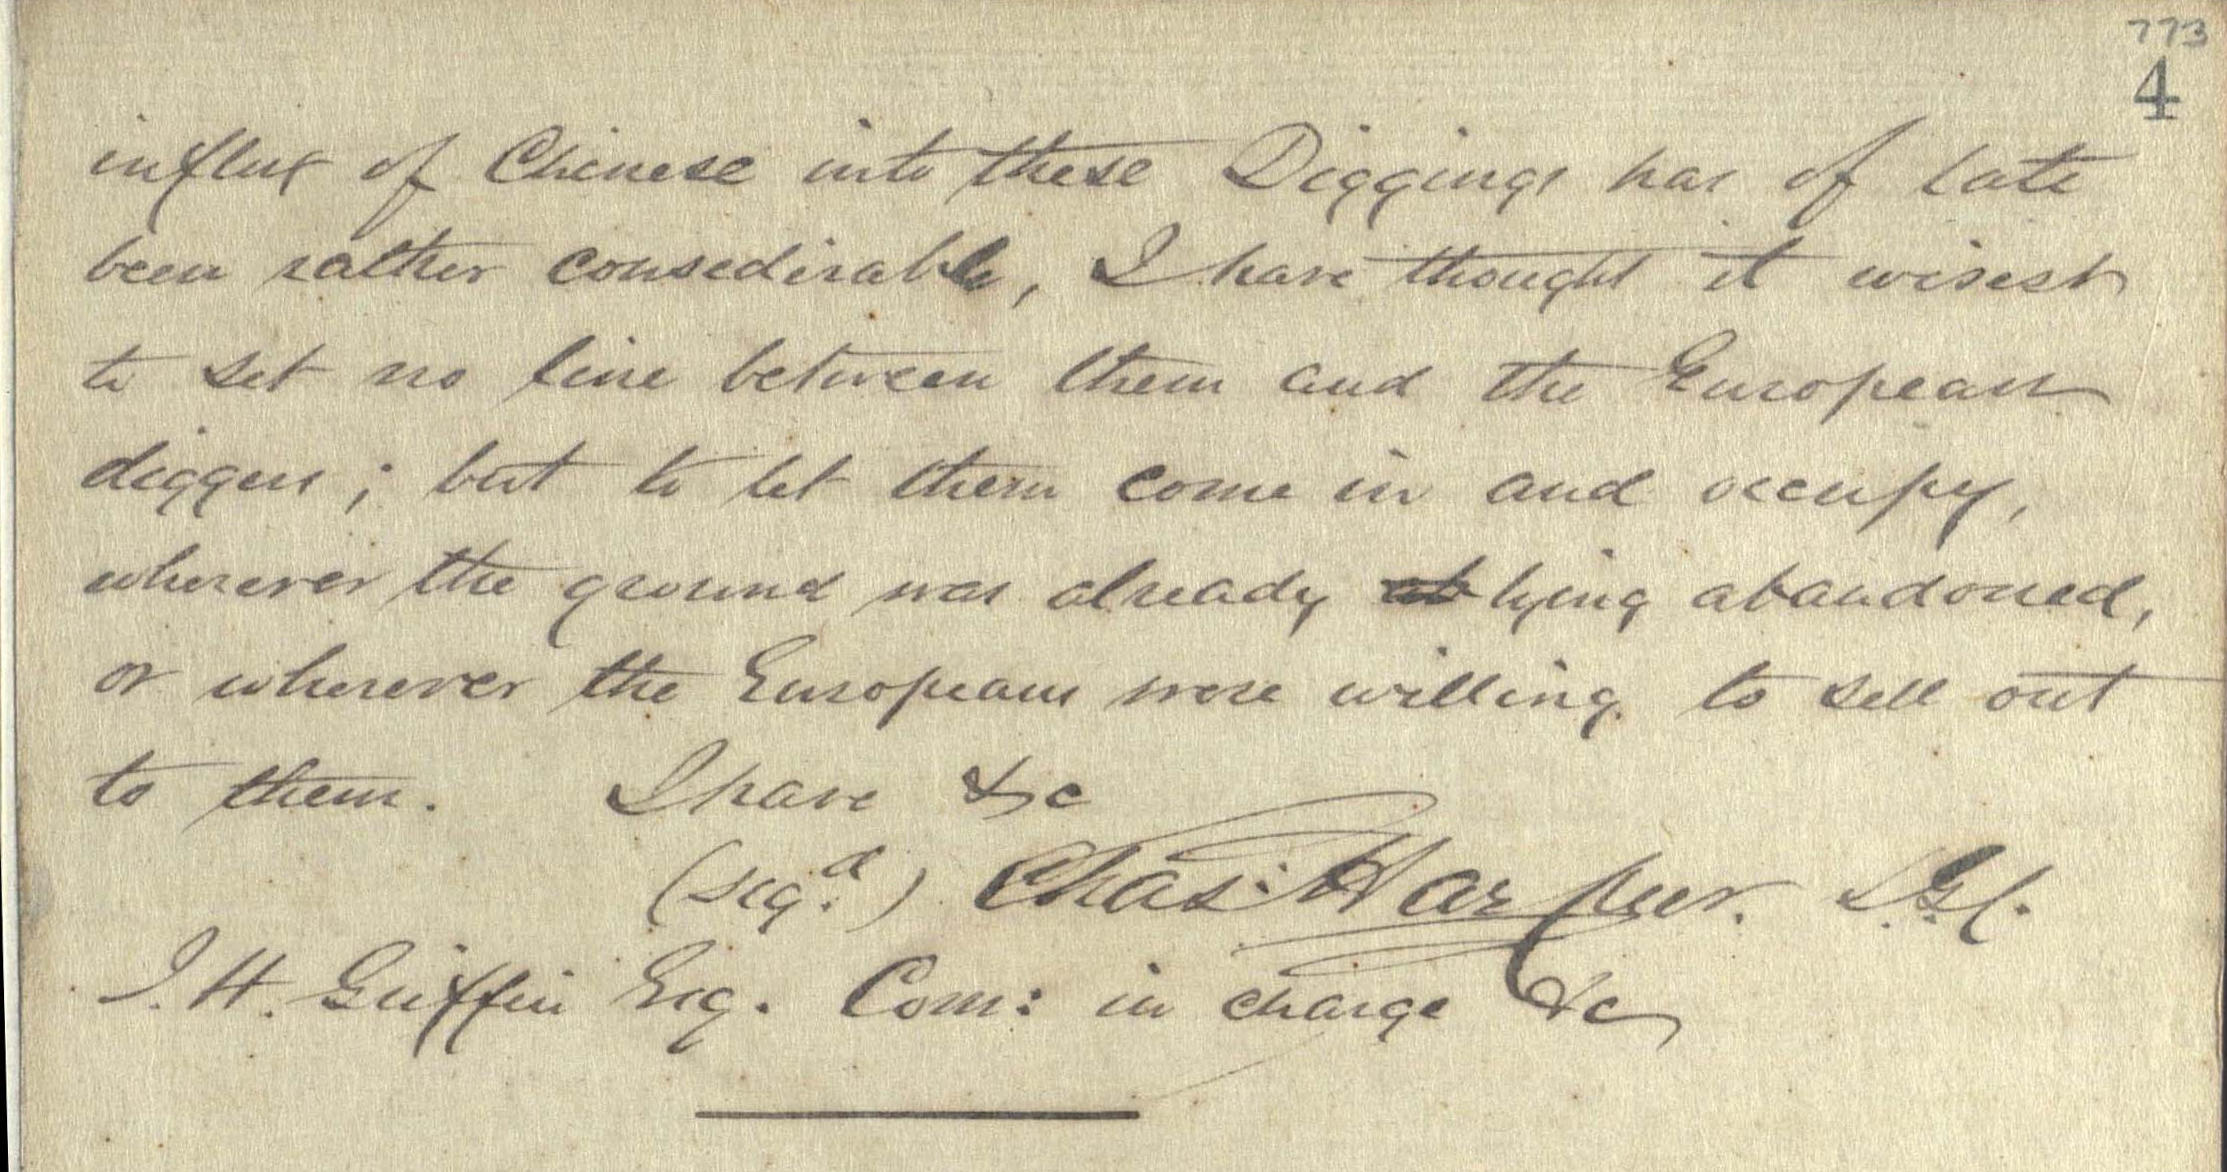 773
4
influx of Chinese into these Diggings has of late
been rather consederable, I have thought it wisest
to set no line between them and the European
diggers; but to let them come in and occupy,
wherever the ground was already lying abandoned,
or wherever the Europeans were willing to sell out
to them. I have &c
(sigd.) Chas: Harpur.
J. H. Griffin Esq. Com: in charge &c